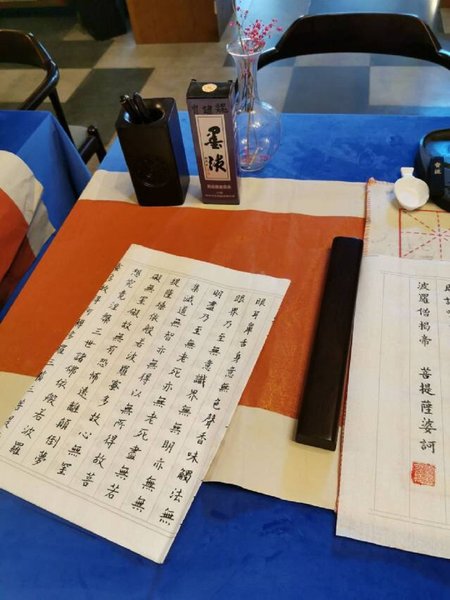 墨液
眼耳鼻舌身意無色聲香味觸法無
眼界乃至無意識界無無明亦無無
明盡乃至無老死亦無老死盡無苦
集滅道無智亦無得以無所得故菩
提薩埵依般若波羅蜜多故心無罣
礙無罣礙故無有恐怖遠離顛倒夢
想究竟涅槃三世諸佛依般若波羅
故得阿耨多羅
波羅僧揭帝 菩提薩婆訶